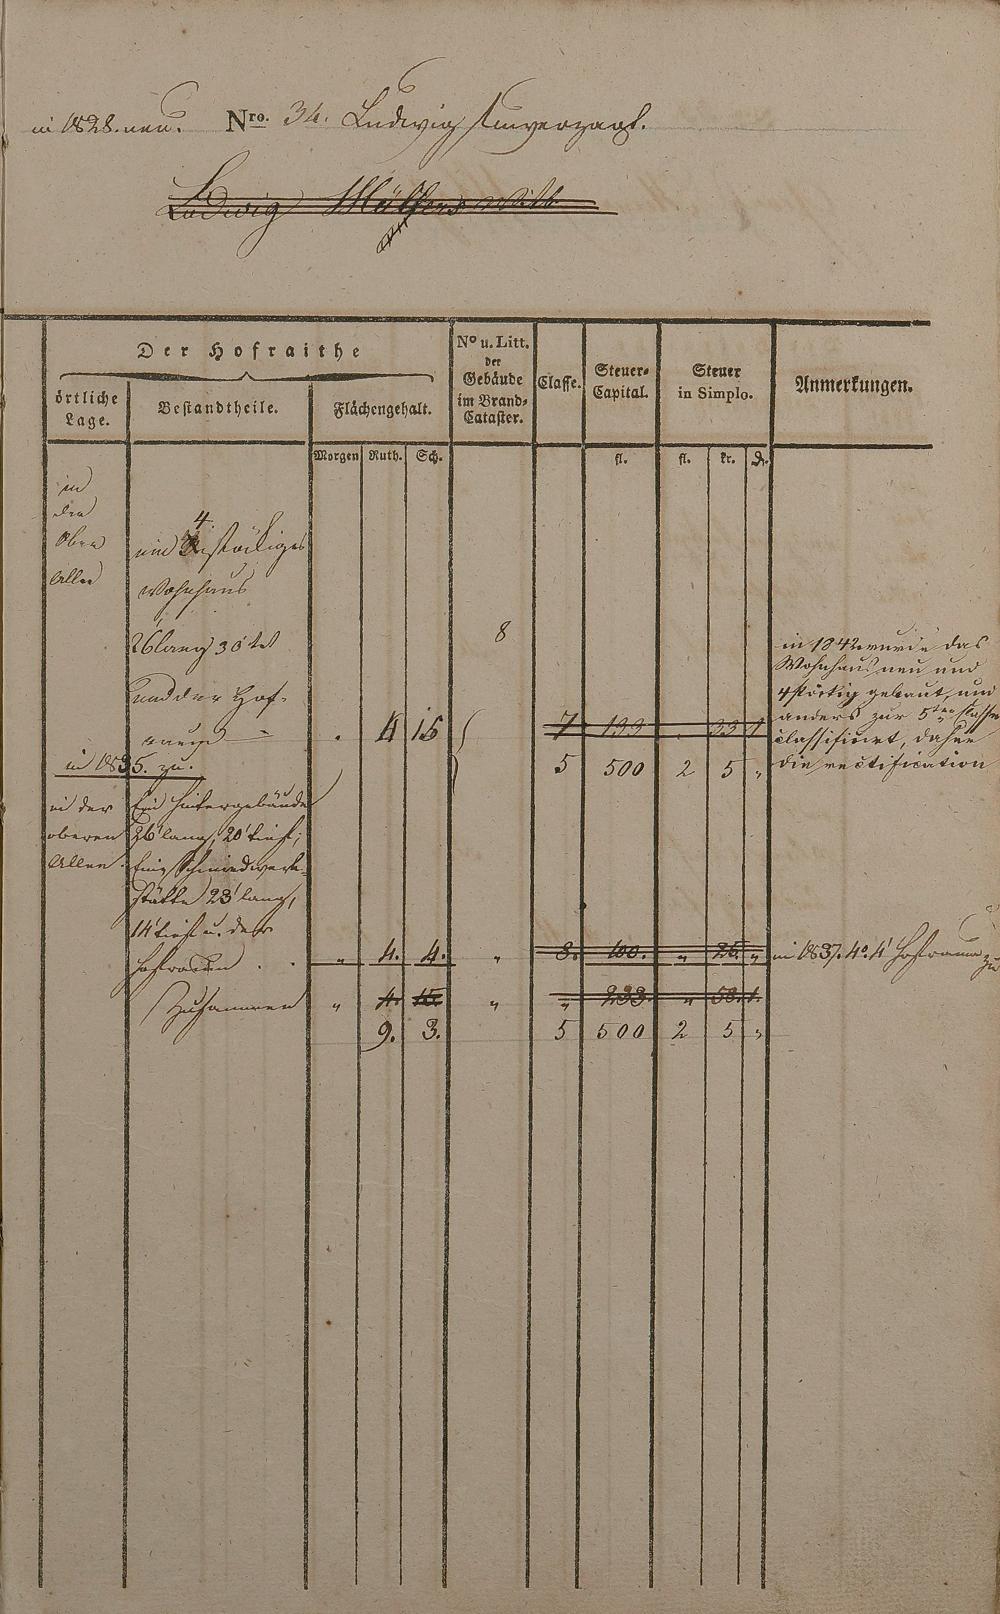 in 1828. neu. Nro. 34. Ludwig Unverzagt.
Ludwig Müllers Witb
Der Hofraithe
örtliche Lage.
Bestandtheile.
Flächengehalt.
No u. Litt. der Gebäude im Brand-Cataster.
Classe.
Steuer-Capital.
Steuer in Simplo.
Anmerkungen.
Morgen Ruth. Sch. fl. fl. kr. d.
in
der
Ober
Allee
4.
ein stöckiges
Wohnhaus
26' lang 30' tief
8
und der Hof-
raum . 4 15 7 133 . 33 1
in 1835. zu. 5 500 2 5 "
in 1842 wurde das
Wohnhaus neu und
4stöckig gebaut, und
anders zur 5ten Classe
classificirt, daher
die rectification
in der oberen Allee.
Ein Hintergebäude
26' lang, 20' tief;
Eine Schmiedwerk-
stätte 23' lang,
14' tief u. der
Hofraum . . " 4. 4. " 8. 100. " 25. " in 1837. 4° 4' Hofraum zu
Zusammen " 4. 15. " " 233. " 58. 1.
9. 3. 5 500 2 5 "